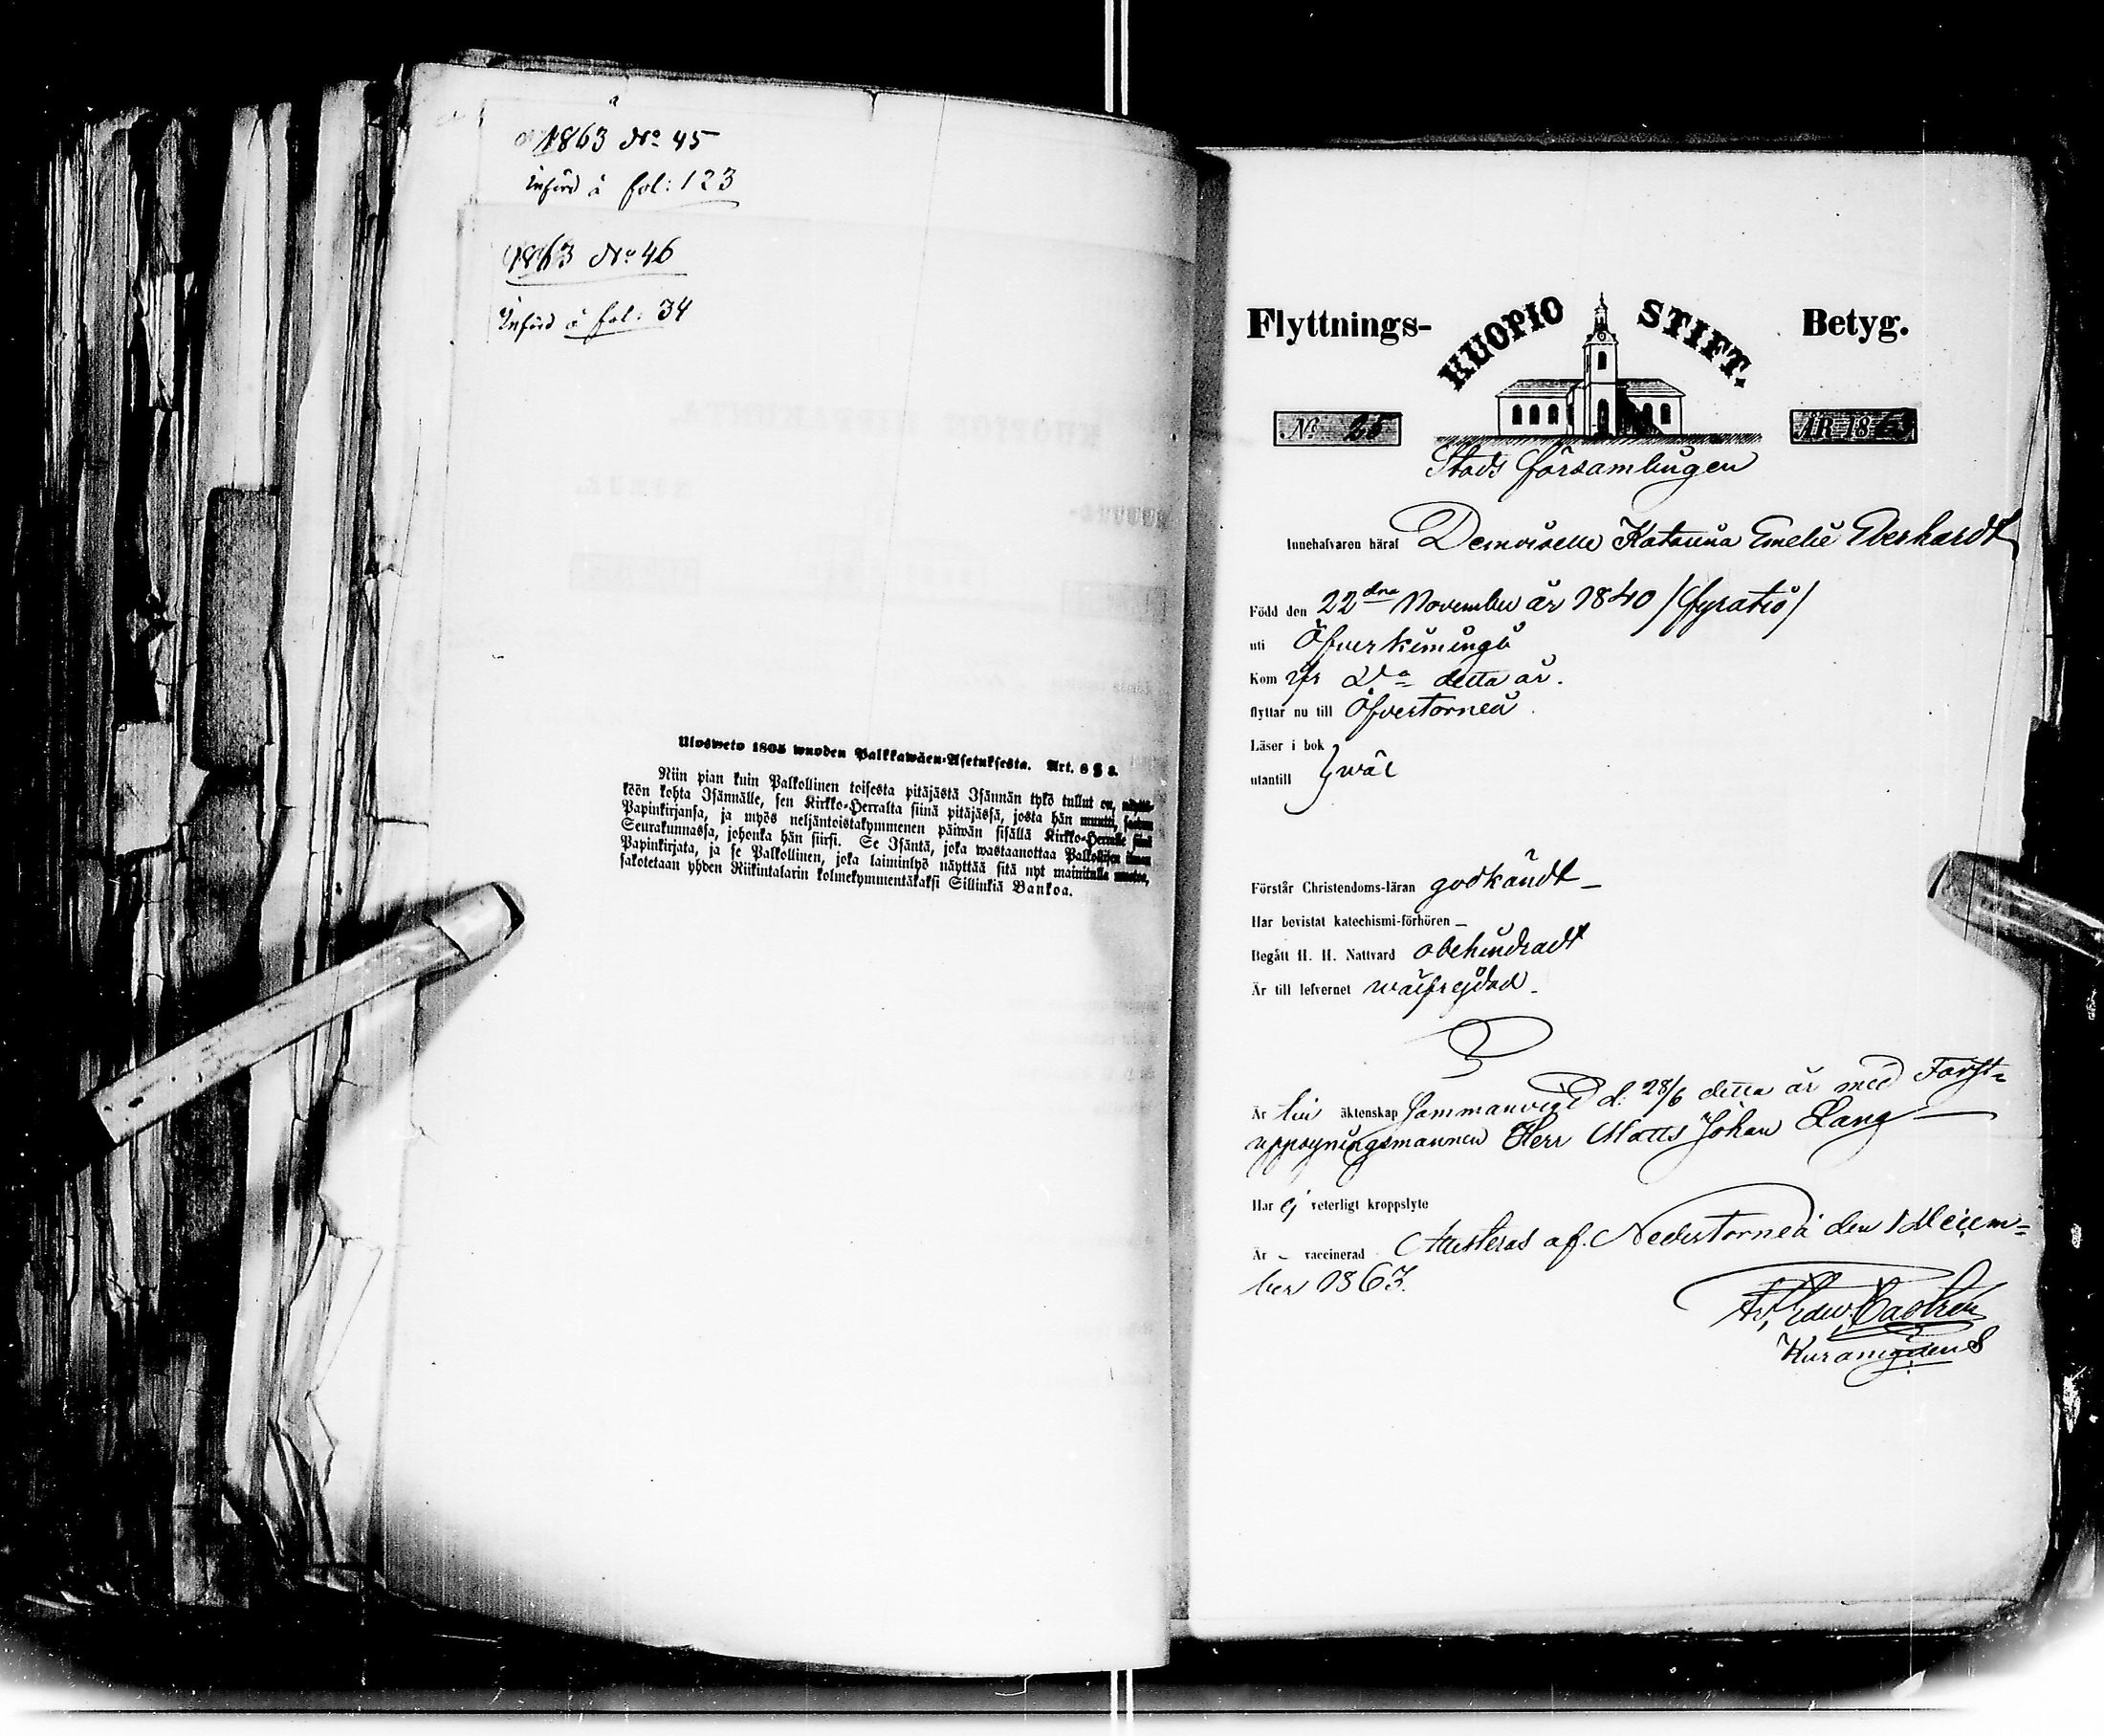 1863 No 45
Införd å fol: 123
1863 No 46
Införd å fol: 34
Ulosweto 1805 wuoden Palkkawäen-Asetuksesta. Art. 8 § 3.
Niin pian kuin Palkollinen toisesta pitäjästä Isännän tykö tullut on,
köön kohta Isännälle, sen Kirkko-Herralta siinä pitäjässä, josta hän muutti,
Papinkirjansa, ja myös neljäntoistakymmenen päiwän sisällä Kirkko-Herralle siinä
Seurakunnassa, johonka hän siirsi. Se Isäntä, joka wastaanottaa Palkollisen ilman
Papinkirjata, ja se Palkollinen, joka laiminlyö näyttää sitä nyt mainitulla
sakotetaan yhden Riikintalarin kolmekymmentäkaksi Sillinkiä Bankoa.
Flyttnings- KUOPIO STIFT. Betyg.
No 25 ÅR 1863
Stads församlingen
Innehafvaren häraf Demoiselle Katarina Emelie Eberhardt
Född den 22dra November år 1840 /fyratio/
uti Öfverkiminge
Kom detta år.
flyttar nu till Öfvertorneå
Läser i bok
utantill } wäl
Förstår Christendoms-läran godkändt
Har bevistat katechismi-förhören
Begått H. H. Nattvard obehindradt
Är till lefvernet wälfrejdad
Är till äktenskap Sammanvigd d: 28/6 detta år med Forst-
uppsyningsmannen Herr Matts Johan Lang
Har ej veterligt kroppslyte
Är vaccinerad Attesteras af Nedertorneå den 1 Decem-
ber 1863.
Castrén